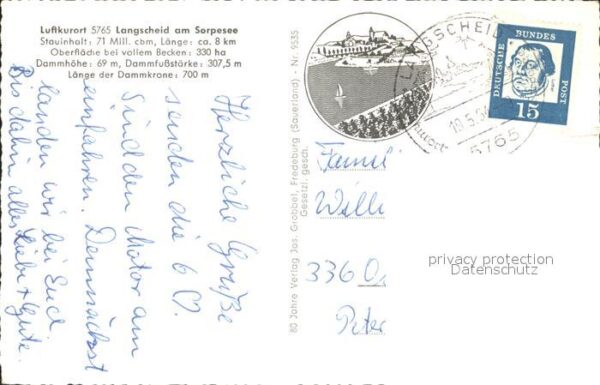 Luftkurort 5765 Langscheid am Sorpesee
Stauinhalt: 71 Mill. cbm, Länge: ca. 8 km
Oberfläche bei vollem Becken: 330 ha
Dammhöhe: 69 m, Dammfußstärke: 307,5 m
Länge der Dammkrone: 700 m
Herzliche Grüße
senden die 6
Sind den Motor am
einfahren. Demnächst
landen wir bei Euch
Bis dahin alles Liebe + Gute.
80 Jahre Verlag Jos. Grobbel, Fredeburg (Sauerland) · Nr. 9535
Gesetzl. gesch.
LANGSCHEID
5765
DEUTSCHE BUNDES
POST
15
Famil
Willi
336
Peter
privacy protection
Datenschutz